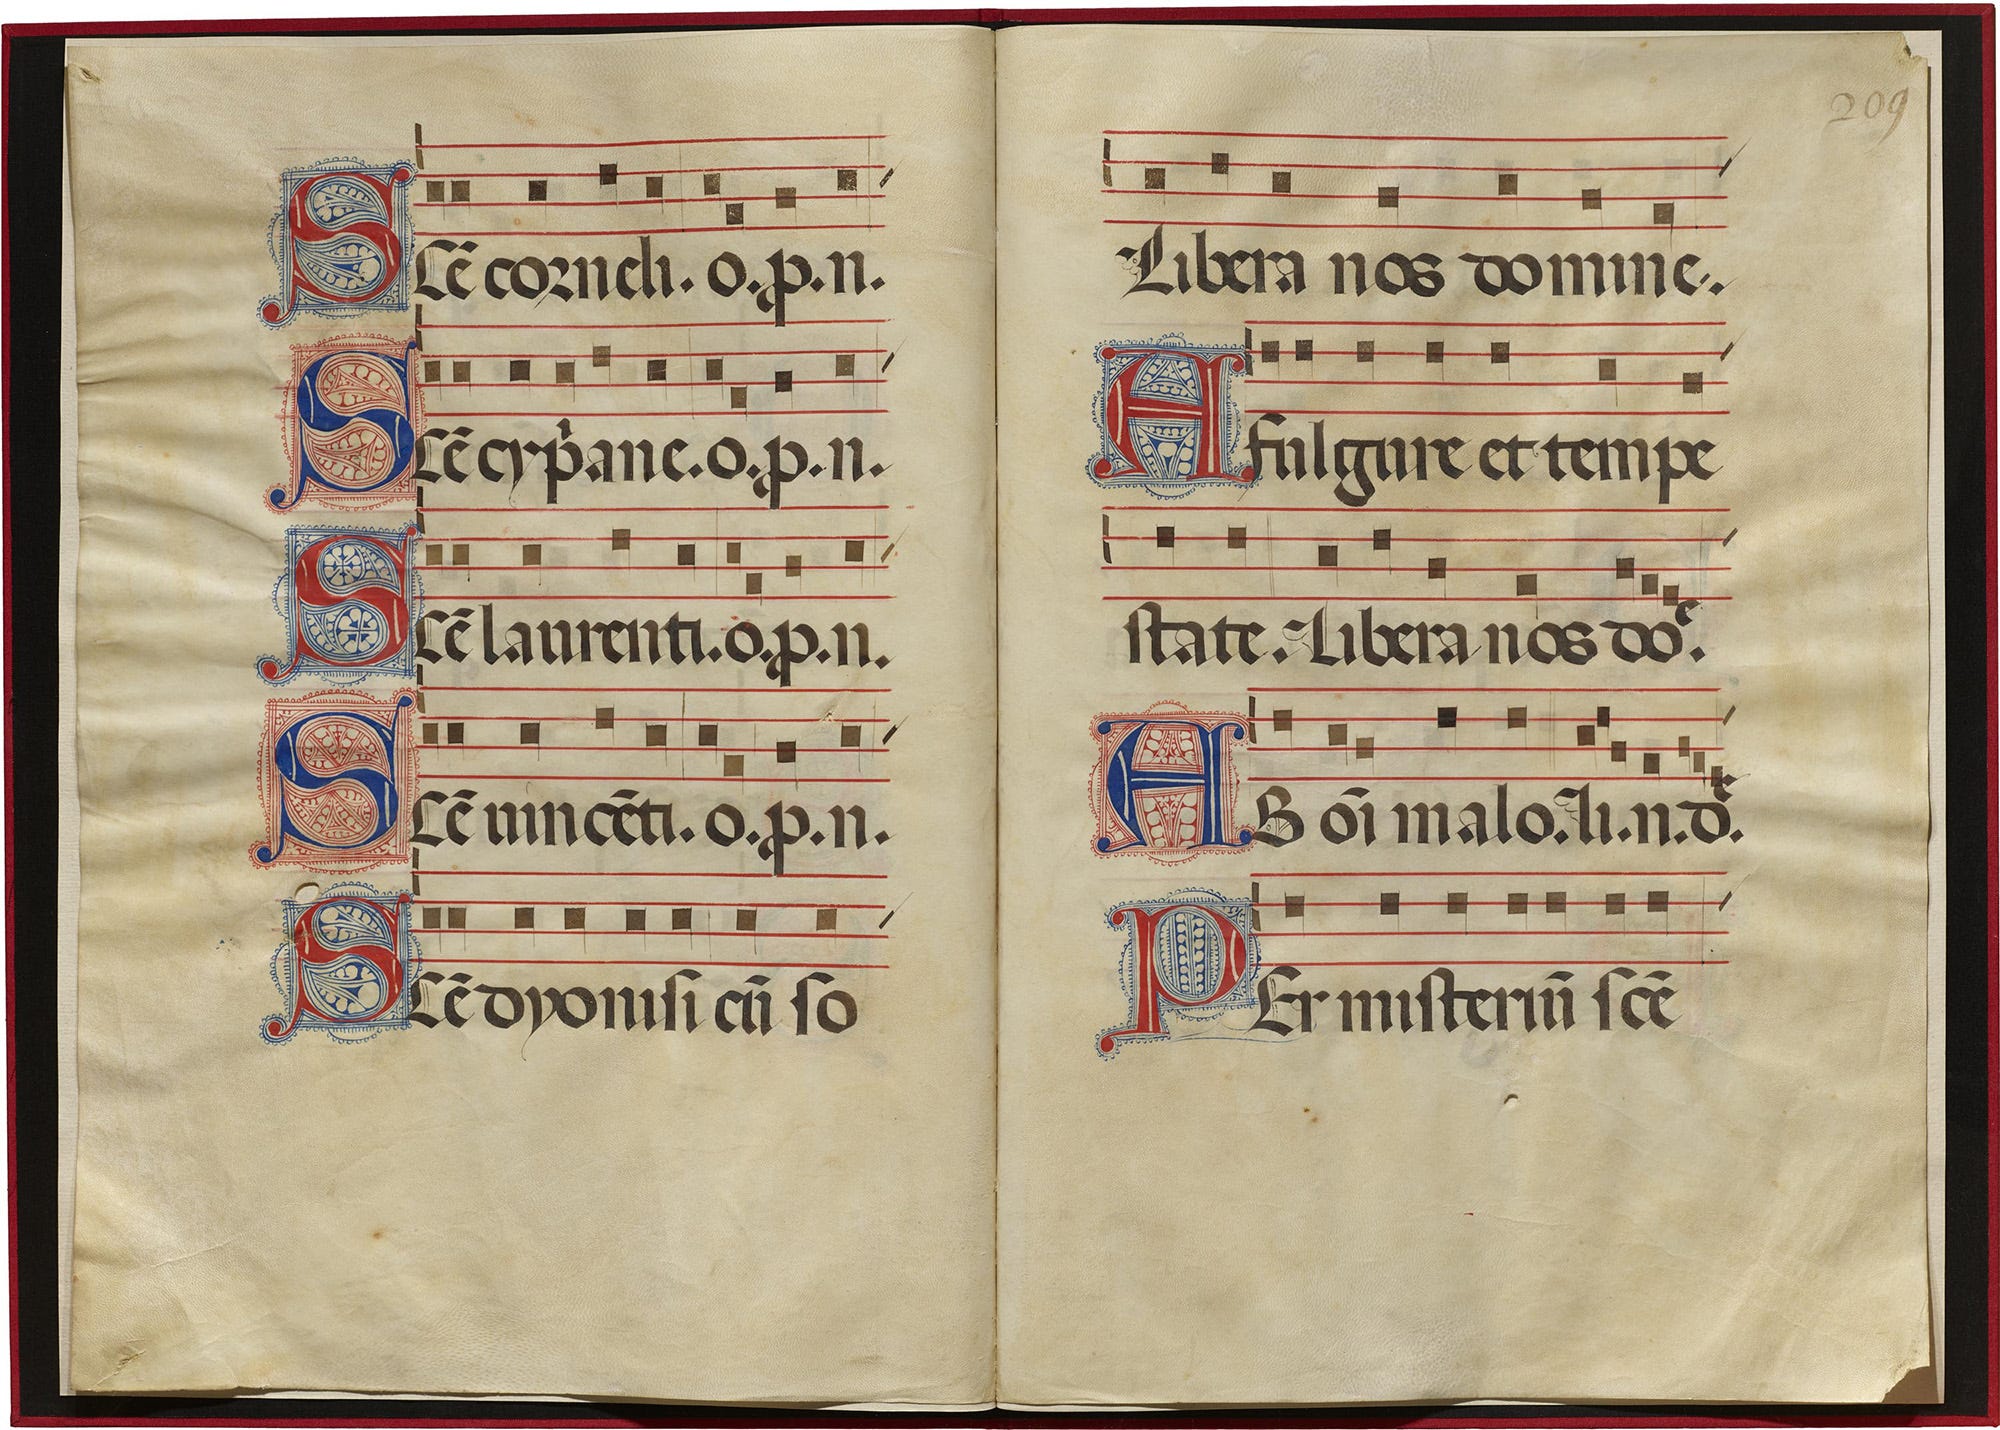 Scē corneli. o.p.n.
Scē cyp̓ane. o.p.n.
Scē laurenti. o.p.n.
Scē uincēti. o.p.n.
Scē dyonisi cū so
209
Libera nos domine.
A fulgure et tempe
state. Libera nos doᵉ.
AB oı̄ malo. li.n.dᵉ.
PEr misteriū scē